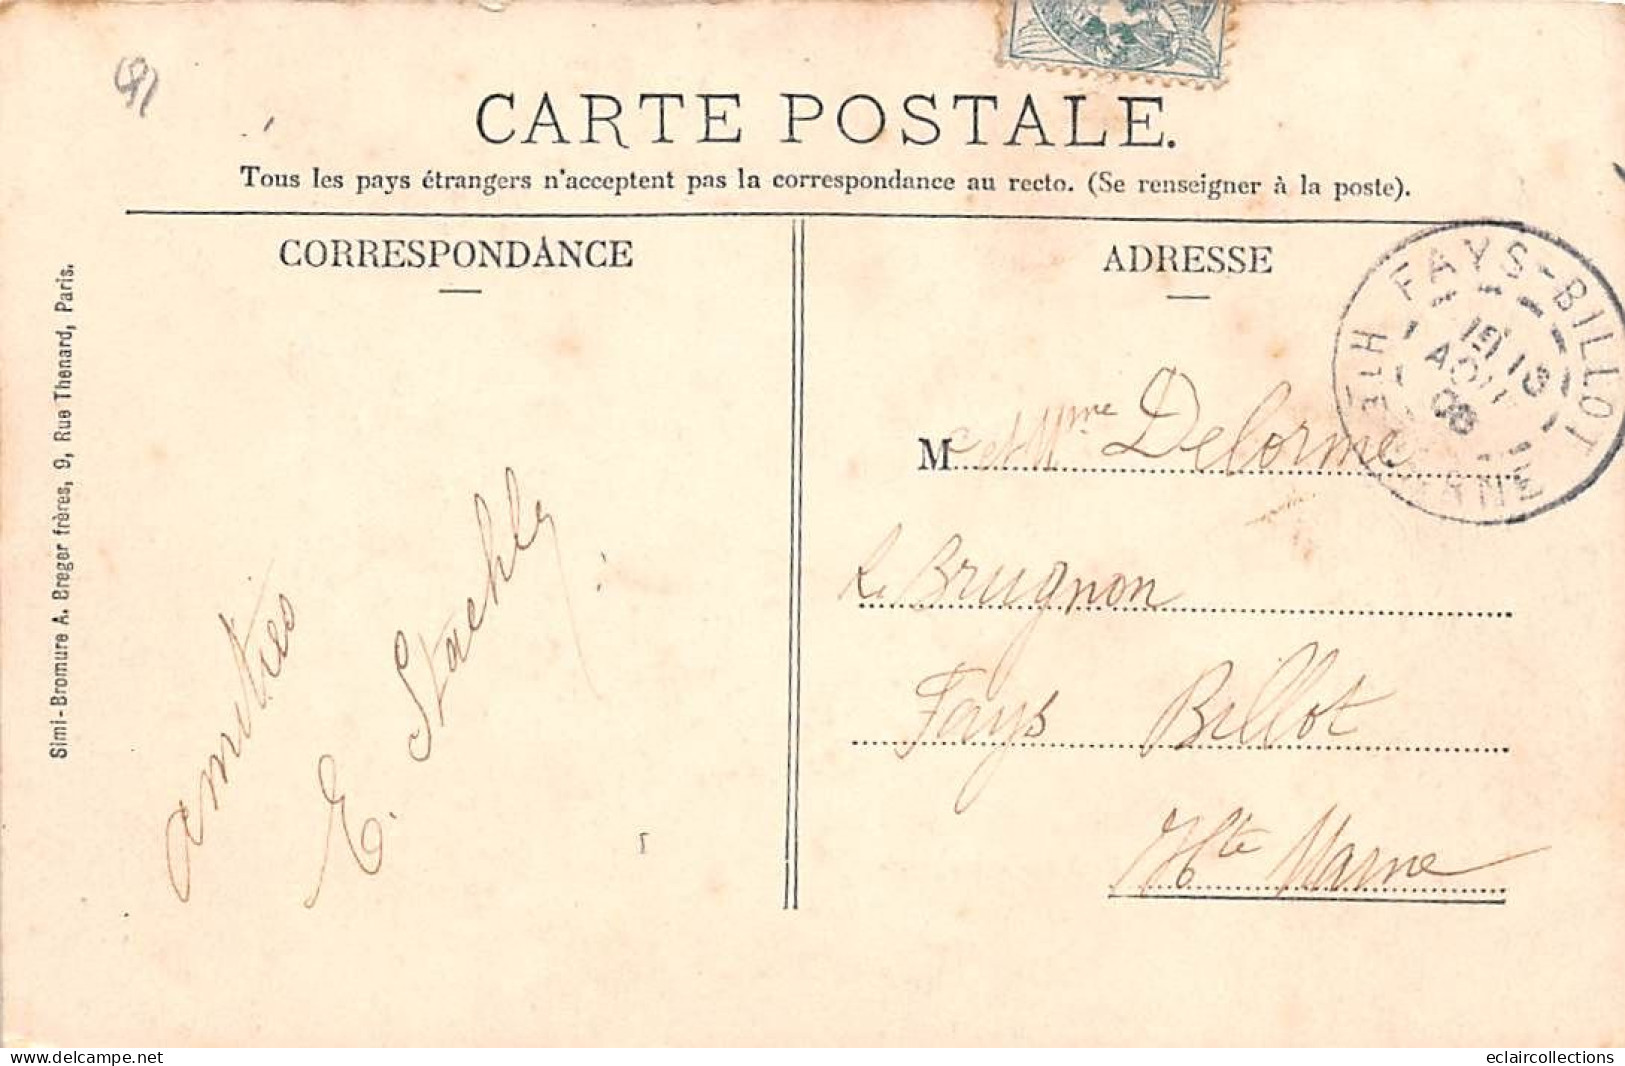 CARTE POSTALE.
Tous les pays étrangers n'acceptent pas la correspondance au recto. (Se renseigner à la poste).
CORRESPONDANCE
ADRESSE
FAYS-BILLOT
HTE MARNE
AOUT
08
M et Mme Delorme
Le Brugnon
Fays Billot
Hte Marne
amities
E. Stachly
Simi-Bromure A. Breger frères, 9, Rue Thenard, Paris.
www.delcampe.net
eclaircollections